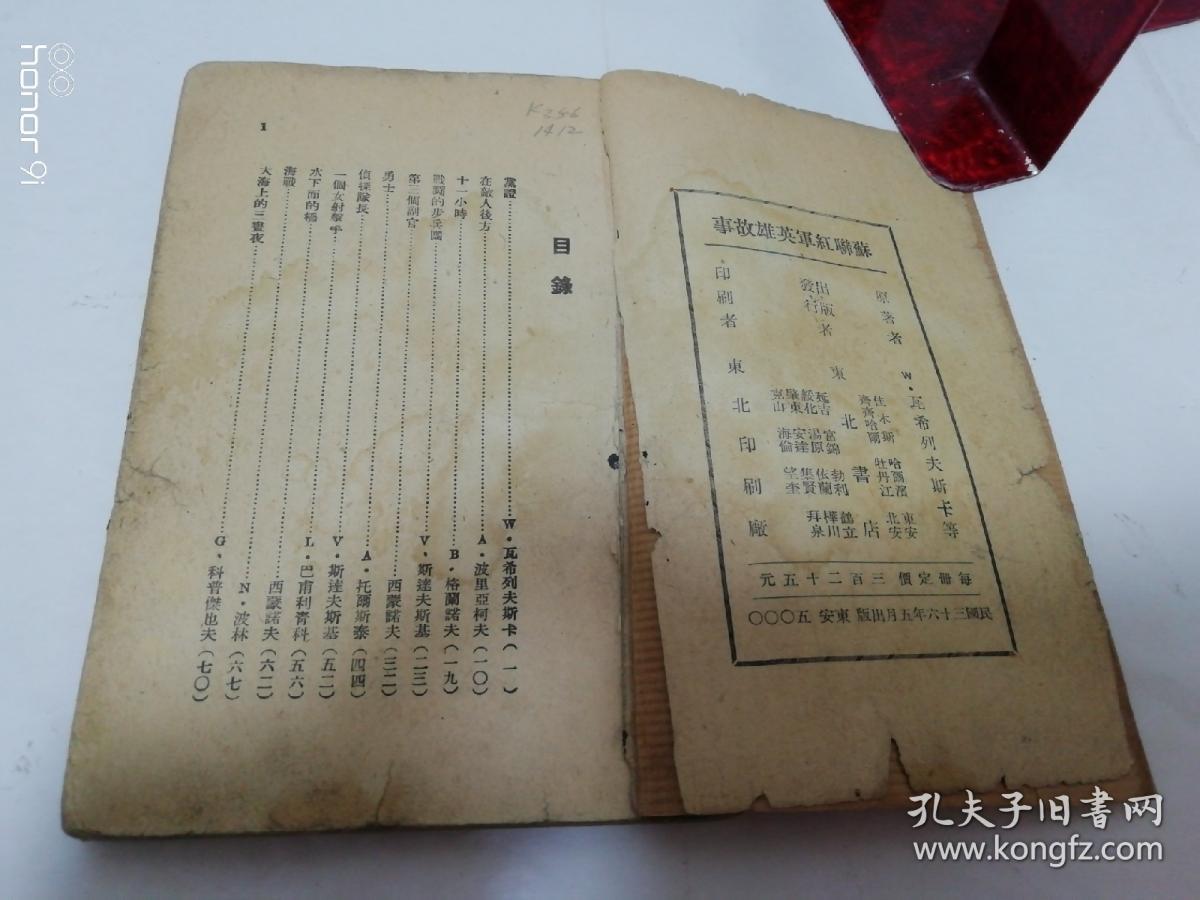 蘇聯紅軍英雄故事
原著者 W·瓦希列夫斯卡等
出版者
發行
東北書店
佳木斯
齊齊哈爾
哈爾濱
牡丹江
東安
北安
延吉
綏化
肇東
克山
富錦
湯原
安達
海倫
勃利
依蘭
集賢
望奎
鶴立
樺川
拜泉
印刷者 東北印刷廠
每冊定價三百二十五元
民國三十六年五月出版 東安 五〇〇〇
K256
1412
目錄
黨證 W·瓦希列夫斯卡(一)
在敵人後方 A·波里亞柯夫(一〇)
十一小時 B·格蘭諾夫(一九)
戰鬪的步兵團 V·斯達夫斯基(二三)
第三個副官 西蒙諾夫(三二)
勇士 A·托爾斯泰(四四)
偵探隊長 V·斯達夫斯基(五二)
一個女射擊手 L·巴甫利青科(五六)
水下面的橋 西蒙諾夫(六二)
海戰 N·波林(六七)
大海上的三晝夜 G·科普傑也夫(七〇)
1
honor 9i
孔夫子旧书网
www.kongfz.com